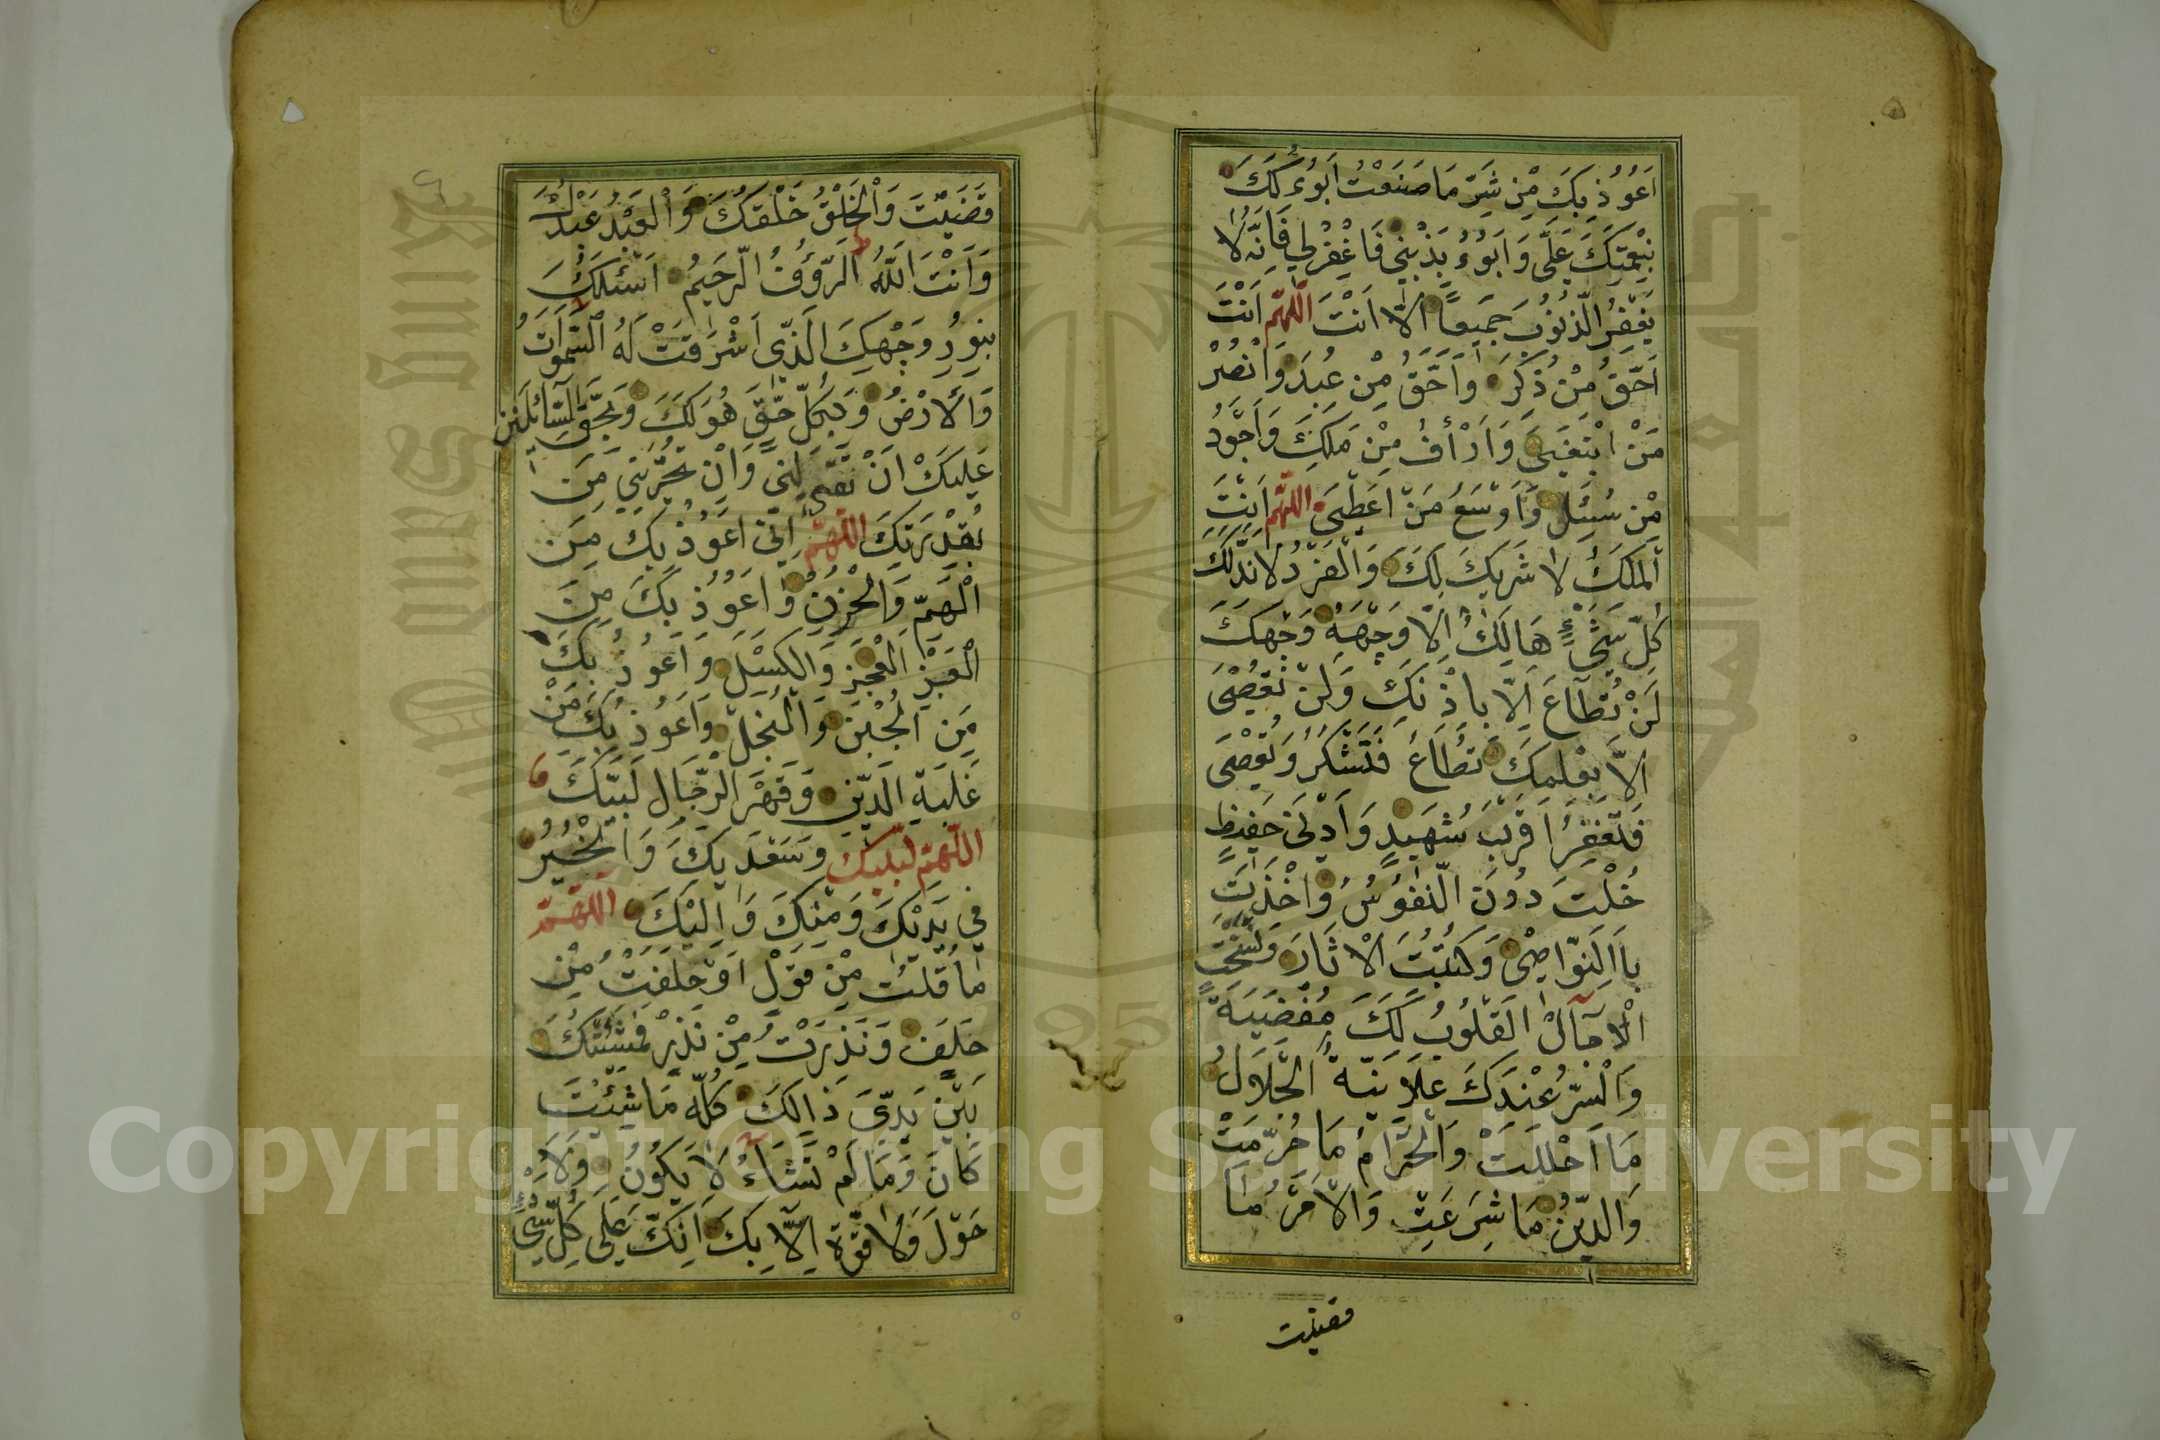 اَعُوُذِ بِكَ مِنْ شَرِّ مَا صَنَعْتُ اَبُوُءُ لَكَ
بِنِعْمَتِكَ عَلَىَّ وَ اَبُوُءُ بِذَنْبِي فَاغْفِرْ لِي فَاِنَّهُ لَا
يَغْفِرُ الذُّنُوُبَ جَمِيعاً اِلَّا اَنْتَ اَللّٰهُمَّ اَنْتَ
اَحَقُّ مَنْ ذُكِرَ وَاَحَقُّ مَنْ عُبِدَ وَانْصُرْ
مَنْ ابْتُغِىَ وَاَرْأَفُ مَنْ مَلَكَ وَاَجْوَدُ
مَنْ سُئِلَ وَاَوْسَعُ مَنْ اَعْطٰى اَللّٰهُمَّ اَنْتَ
اَلْمَلِكُ لَا شَرِيكَ لَكَ وَالْفَرْدُ لَا نِدَّ لَكَ
كُلِّ شَىْءٍ هَالِكٌ اِلَّا وَجْهَهُ وَجْهَكَ
لَنْ تُطَاعَ اِلَّا بِاذْنِكَ وَلَنْ تُعْصٰى
اِلَّا بِعِلْمِكَ تُطَاعُ فَتَشْكُرُ وَتُعْصٰى
فَتَغْفِرُ اَقْرَبُ شَهِيدٍ وَاَدْنٰى حَفِيظٍ
حُلْتَ دُونَ النُّفُوُسُ وَاَخَذْتَ
بِاَلنَّوَاصِى وَكَتَبْتَ الْاٰثَارَ وَنَسَخْتَ
الْاٰجَالَ الْقُلُوُبُ لَكَ مُفْضِيَةٌ
وَالسِّرُّ عِنْدَكَ عَلَانِيَةٌ الْحَلَالُ
مَا اَحْلَلْتَ وَالْحَرَامُ مَا حَرَّمْتَ
وَالدِّينُ مَا شَرَعْتَ وَالْاَمْرُ مَا
قضيت
قَضَيْتَ وَالْخَلْقُ خَلْقُكَ وَالْعَبْدُ عَبْدُكَ
وَاَنْتَ اللّٰهُ الرَّؤُفُ الرَّحِيمُ اَسْئَلُكَ
بِنُورِ وَجْهِكَ الَّذِى اَشْرَقَتْ لَهُ السَّمٰوَاتُ
وَالْاَرْضُ وَبِكُلِّ حَقٍّ هُوَ لَكَ وَبِحَقِّ السَّائِلِينَ
عَلَيْكَ اَنْ تُقِيلَنِى وَاَنْ تُجِيرَنِي مِنَ
بِقُدْرَتِكَ اَللّٰهُمَّ اِنِّى اَعُوُذُ بِكَ مِنَ
الْهَمِّ وَالْحُزْنِ وَاَعُوُذُ بِكَ مِنَ
الْعَجْزِ الْعَجْزِ وَالْكَسَلِ وَاَعُوُذُ بِكَ
مِنَ الْجُبْنِ وَالْبُخْلِ وَاَعُوُذُ بِكَ مِنْ
غَلَبَةِ الدَّيْنِ وَقَهْرِ الرِّجَالِ لَبَّيْكَ
اَللّٰهُمَّ لَبَّيْكَ وَسَعْدَيْكَ وَالْخَيْرُ
فِي يَدَيْكَ وَمِنْكَ وَاِلَيْكَ اَللّٰهُمَّ
مَا قُلْتُ مِنْ قَوْلٍ اَوْ حَلَفْتُ مِنْ
حَلَفٍ وَنَذَرْتُ مِنْ نَذْرٍ فَمَشِيَّتُكَ
بَيْنَ يَدَىْ ذَالِكَ كُلِّهِ مَا شِئْتَ
كَانَ وَمَا لَمْ تَشَاءُ لَا يَكُوُنُ وَلَا
حَوْلَ وَلَا قُوَّةَ اِلَّا بِكَ اِنَّكَ عَلٰى كُلِّ شَىْءٍ
Copyright © King Saud University
1957